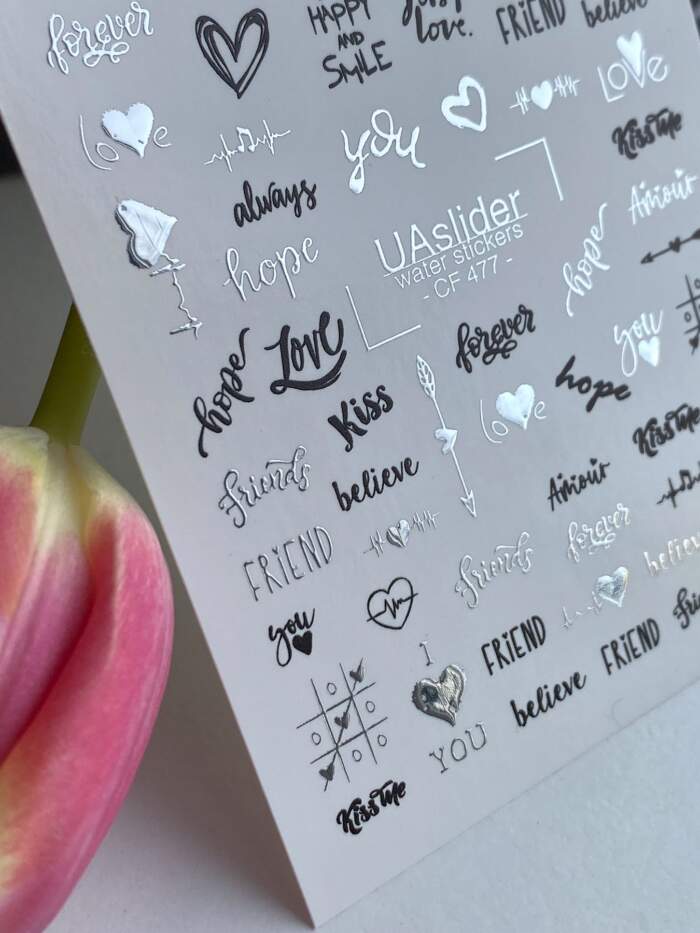 forever
HAPPY
AND
SMILE
love.
FRIEND
believe
love
you
LOVE
Kiss Me
always
Amour
hope
UAslider
water stickers
- CF 477 -
hope
forever
you
hope
Love
love
hope
Kiss
Kiss Me
Friends
believe
Amour
forever
FRIEND
Friends
believe
you
I
FRIEND
FRIEND
believe
YOU
Kiss Me